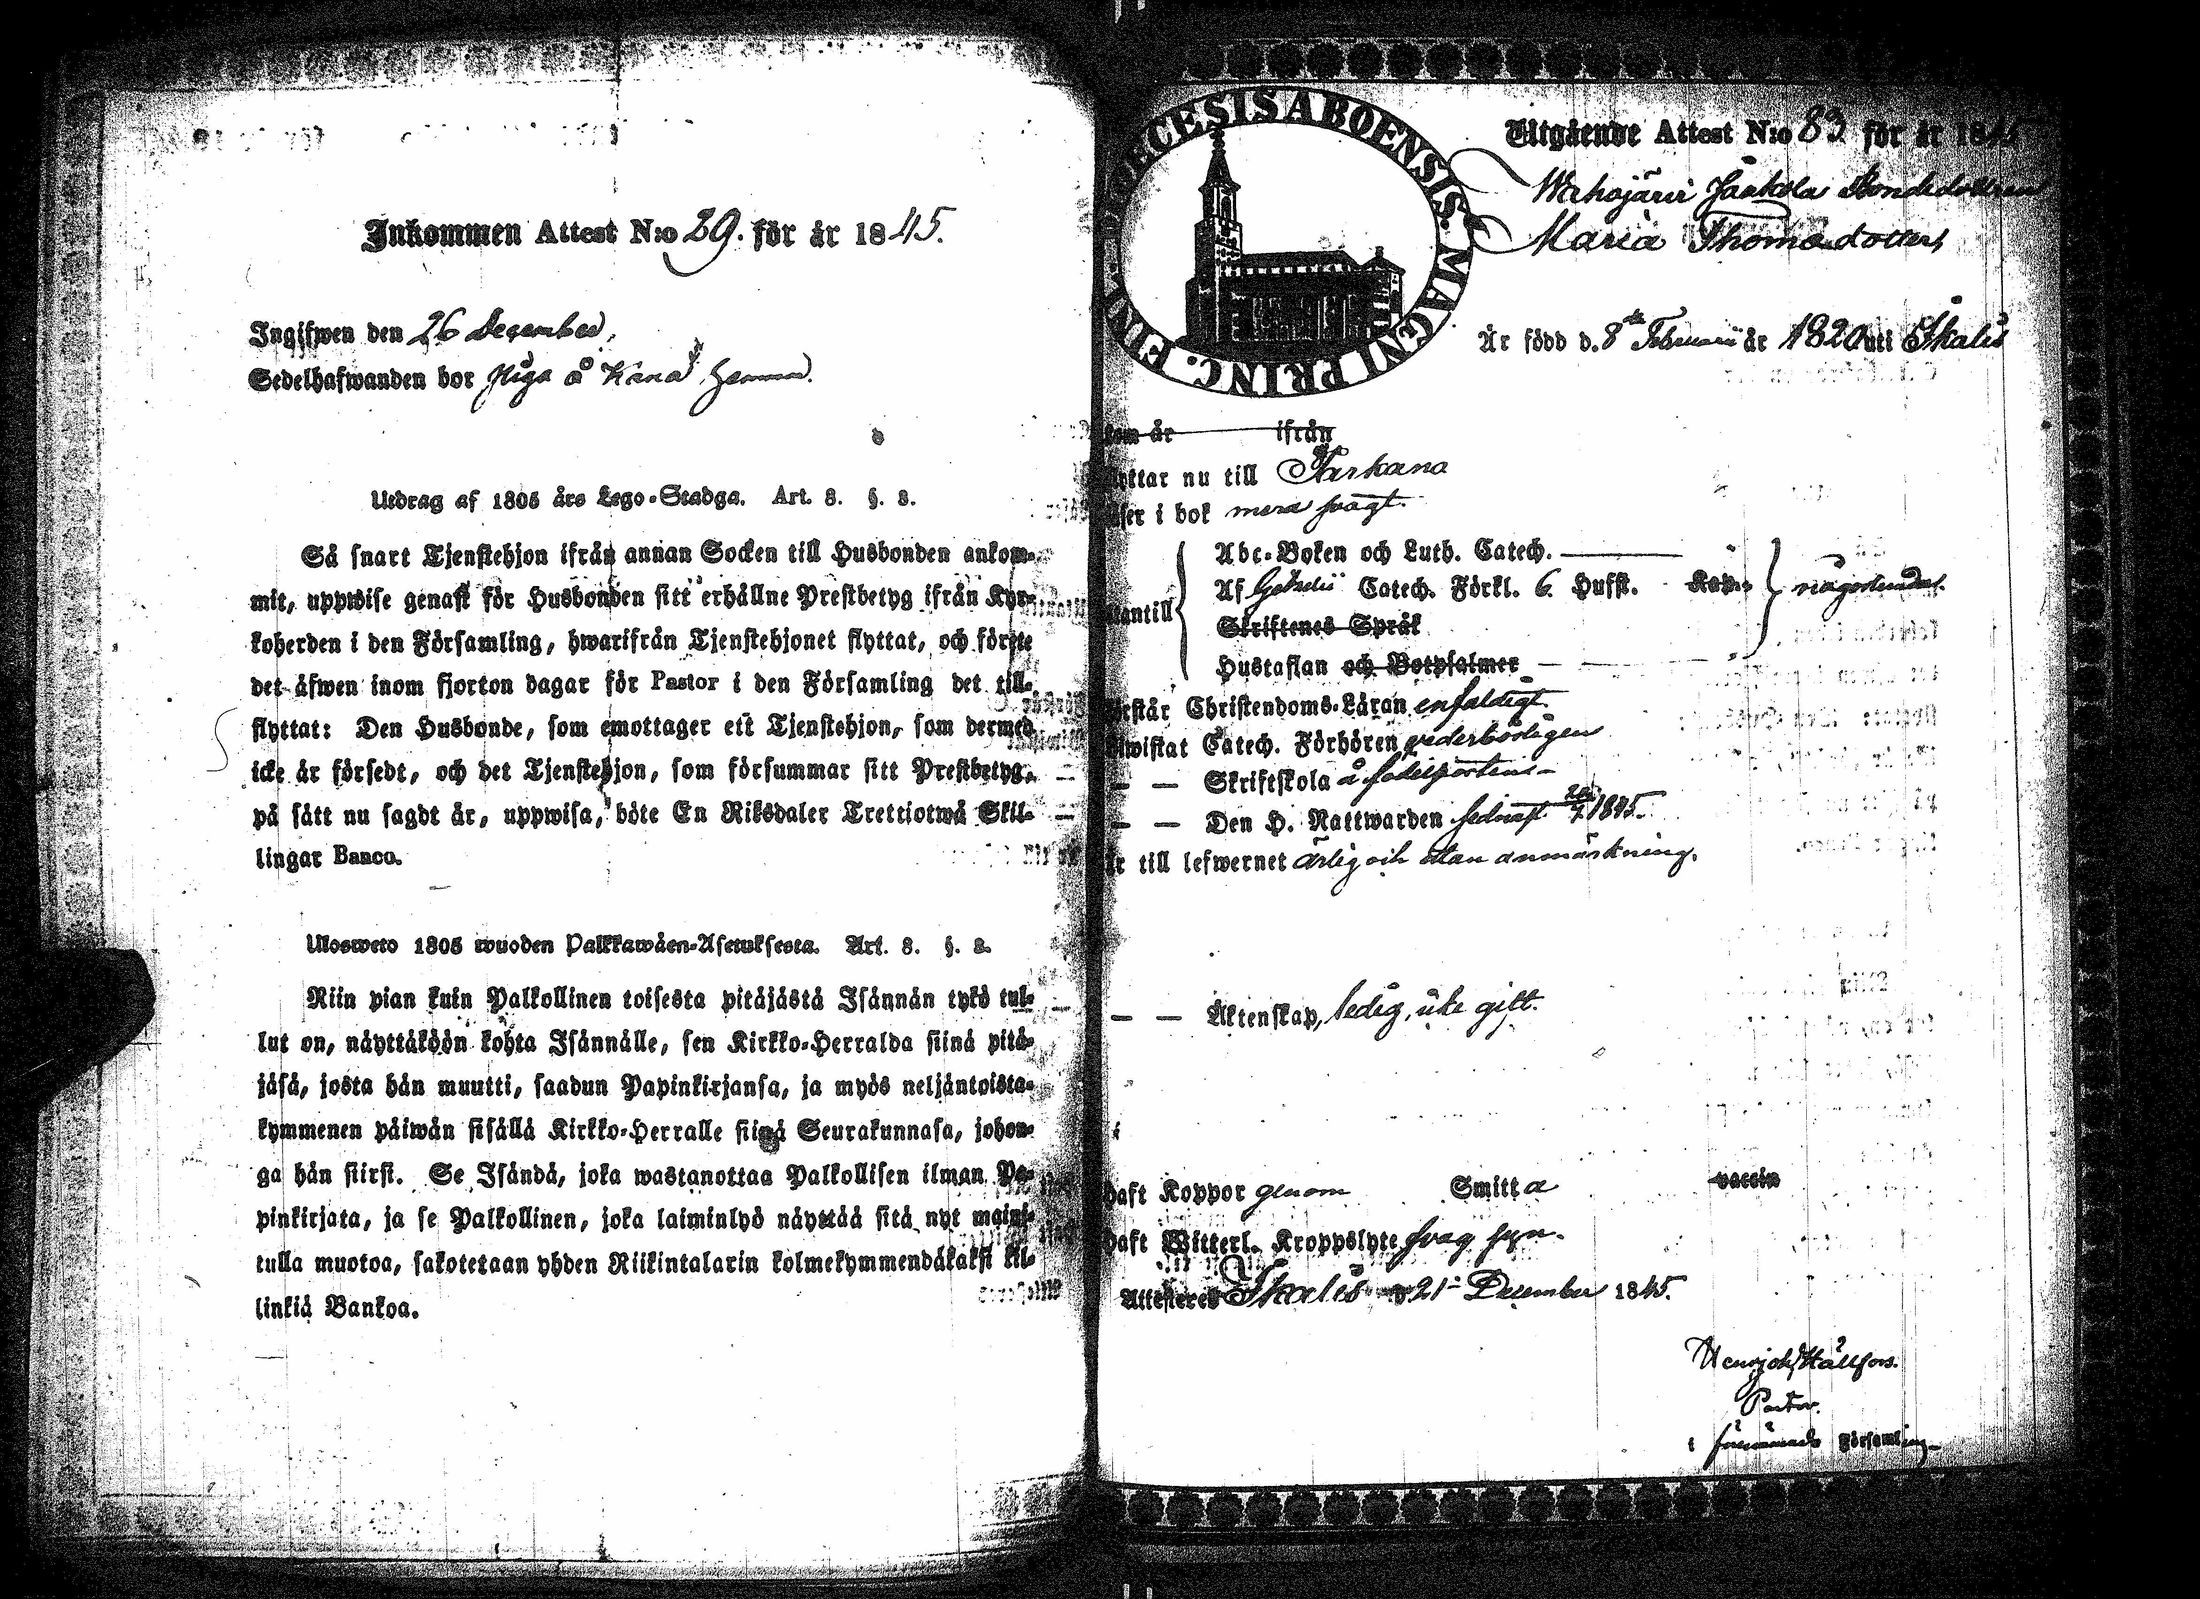 Inkommen Attest N:o 29. för år 1845.
Ingifwen den 26 December,
Sedelhafwanden bor Piga å Kana hemman.
Utdrag af 1805 års Lego-Stadga. Art. 8. §. 8.
Så snart Tjenstehjon ifrån annan Socken till Husbonden ankom-
mit, uppwise genast för Husbonden sitt erhållne Prestbetyg ifrån Kyr-
koherden i den Församling, hwarifrån Tjenstehjonet flyttat, och förete
det äfwen inom fjorton dagar för Pastor i den Församling det till-
flyttat: Den Husbonde, som emottager ett Tjenstehjon, som dermed
icke är försedt, och det Tjenstehjon, som försummar sitt Prestbetyg,
på sätt nu sagdt är, uppwisa, böte En Riksdaler Trettiotwå Skil-
lingar Banco.
Ulosweto 1805 wuoden Palkkawäen-Asetuksesta. Art. 8. §. 8.
Niin pian kuin Palkollinen toisesta pitäjästä Isännän tykö tul-
lut on, näyttäköön kohta Isännälle, sen Kirkko-Herralda siinä pitä-
jäsä, josta hän muutti, saadun Papinkirjansa, ja myös neljäntoista-
kymmenen päiwän sisällä Kirkko-Herralle siinä Seurakunnasa, johon-
ga hän siirsi. Se Isändä, joka wastanottaa Palkollisen ilman Pa-
pinkirjata, ja se Palkollinen, joka laiminlyö näyttää sitä nyt maini-
tulla muotoa, sakotetaan yhden Riikintalarin kolmekymmendäkaksi kil-
linkiä Bankoa.
DIOECESIS ABOENSIS. MAGNI PRINC. FINL.
Utgående Attest N:o 83 för år 1845
Wahojärvi Jaakola Bondedottren
Maria Thomædotter,
Är född d. 8de Februarii år 1820 uti Ikalis
kom år ifrån
flyttar nu till Parkano
läser i bok mera swagt.
utantill
Abc-Boken och Luth. Catech.
Af Gezelii Catech. Förkl. 6 Hufst. Kap.
någorlunda.
Skriftenes Språk
Hustaflan och Botpsalmer
förstår Christendoms-Läran enfaldigt
bewistat Catech. Förhören wederbörligen
— — Skriftskola å födelseortens
— — Den H. Nattwarden sednast 20/7 1845.
Är till lefwernet ärlig och utan anmärkning.
— — Äktenskap, ledig, icke gift.
haft Koppor genom Smitta vaccin
haft Witterl. Kroppslyte swag syn.
Attesteras Ikalis d 21 December 1845.
Henrich Hällfors.
Pastor.
i förenämnde Församling